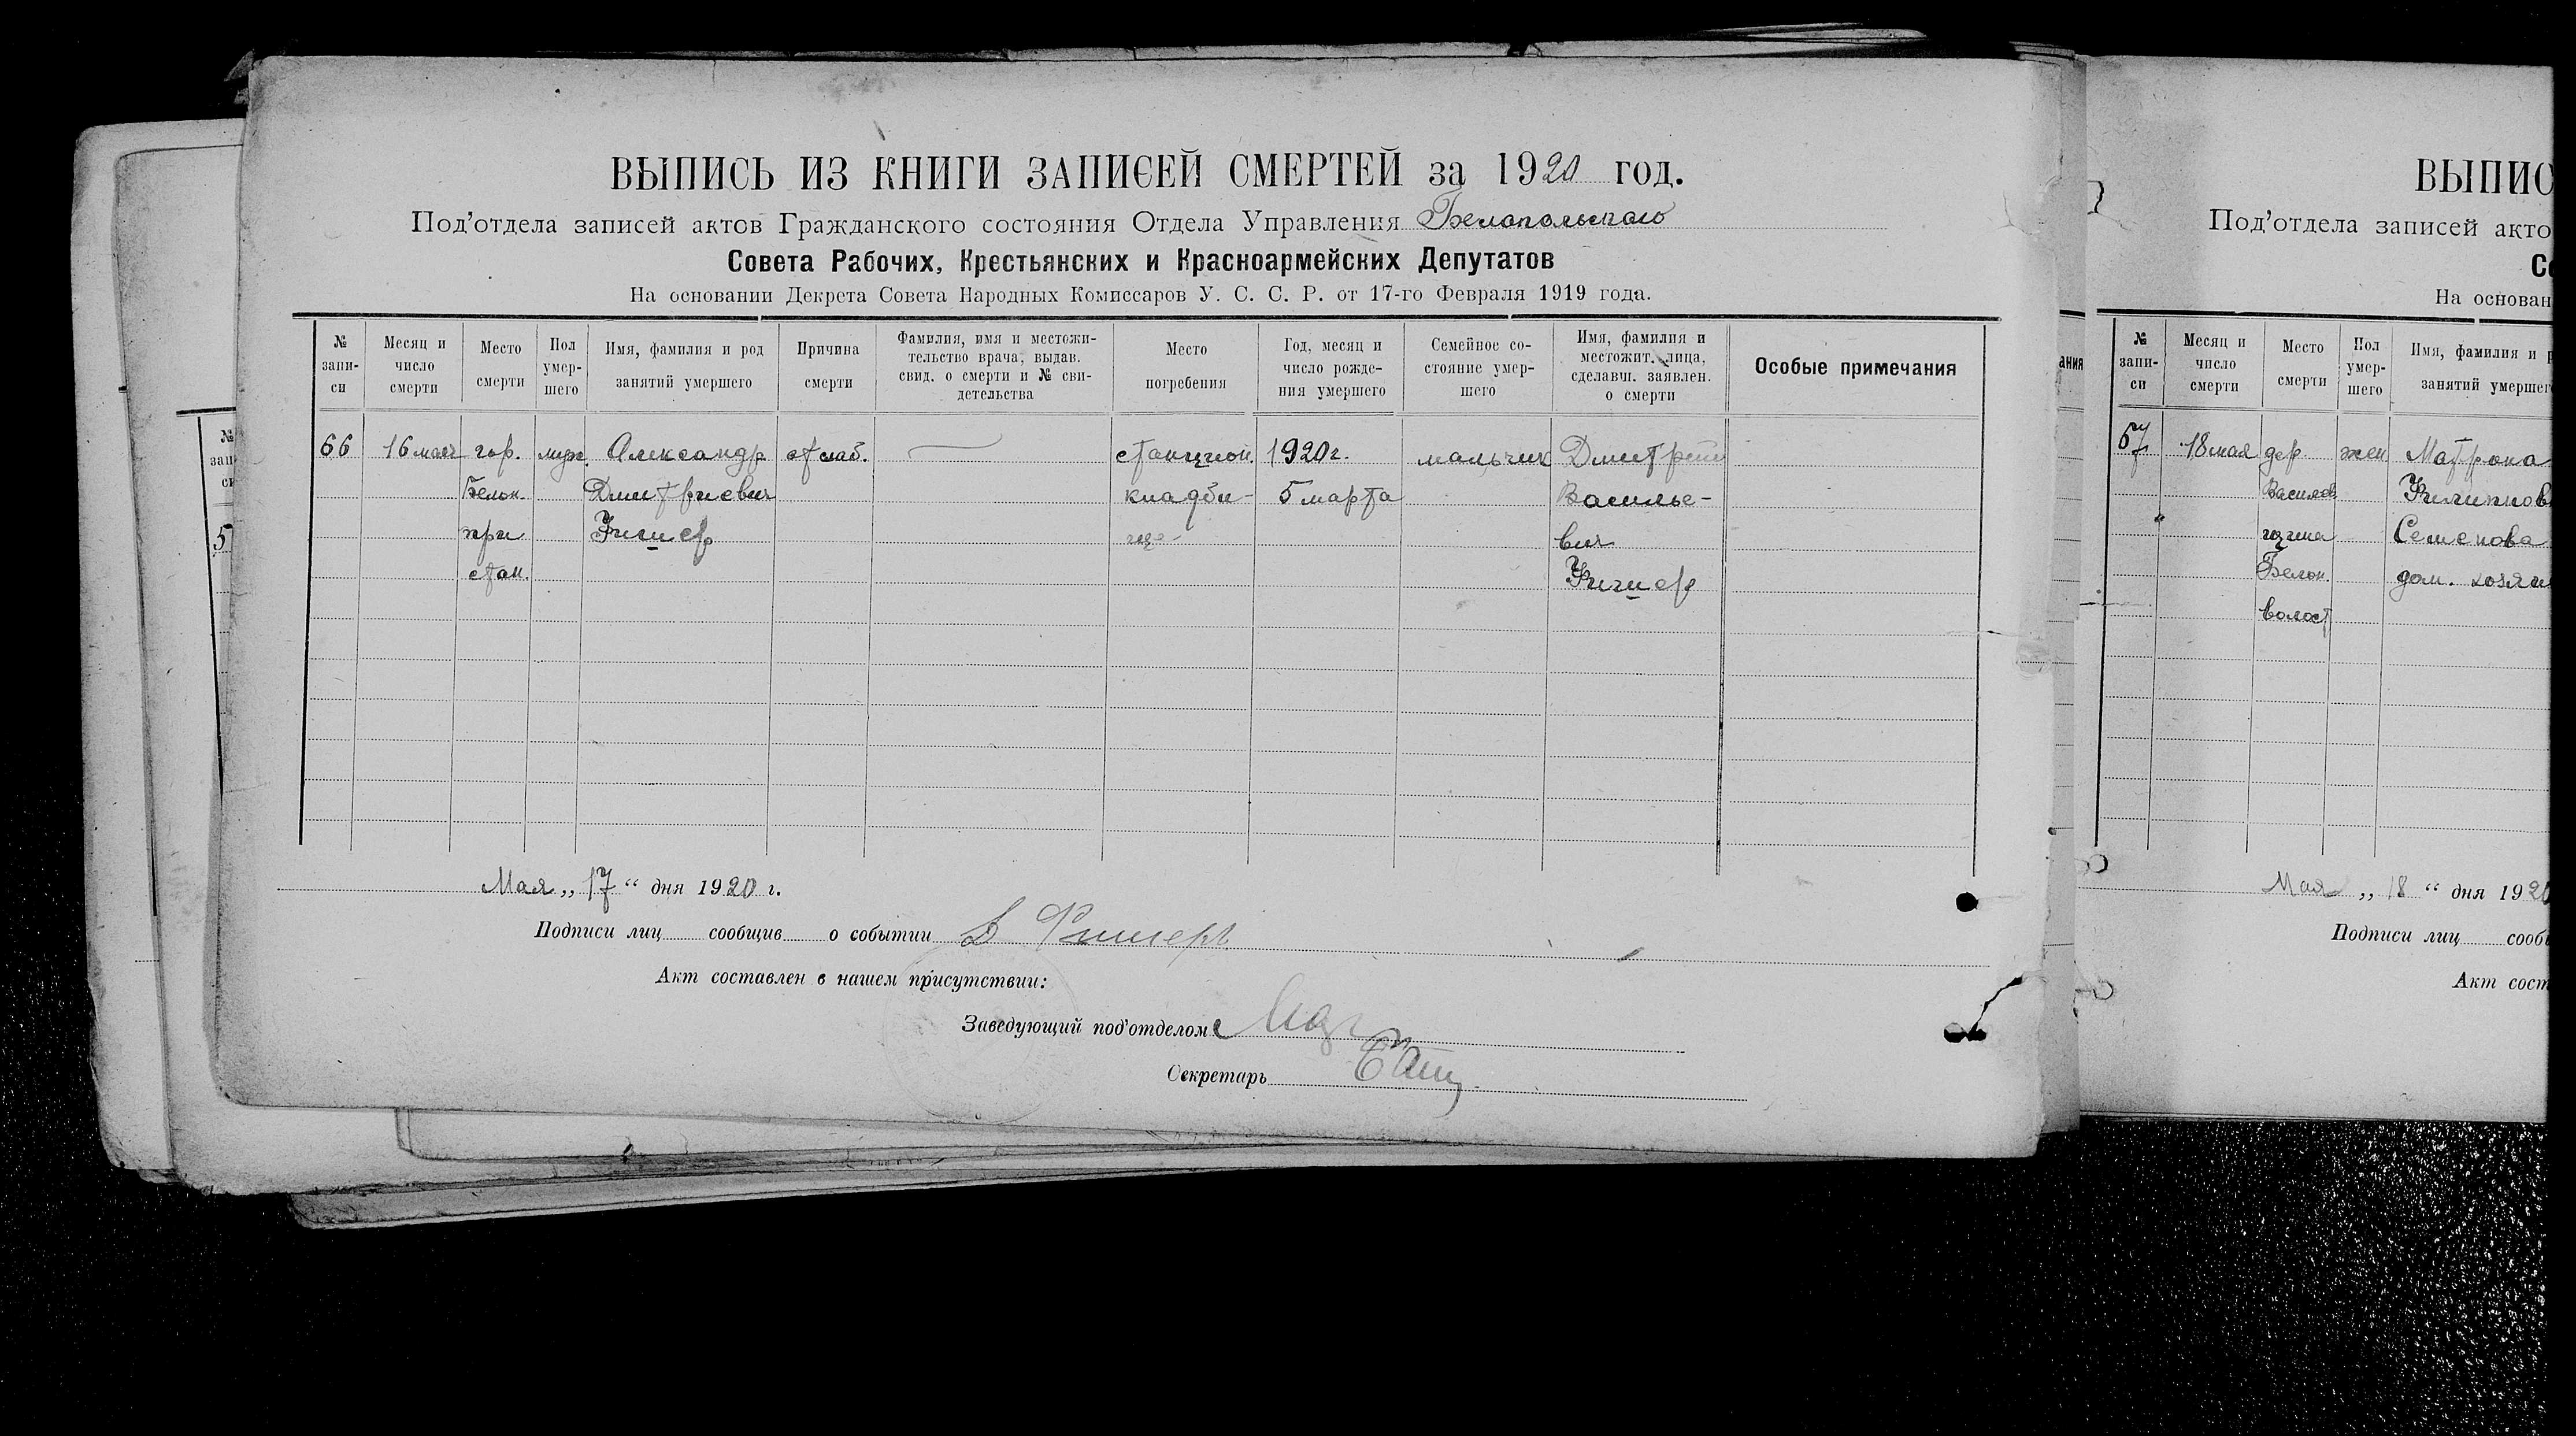 ВЫПИСЬ ИЗ КНИГИ ЗАПИСЕЙ СМЕРТЕЙ за 1920 год.
Под'отдела записей актов Гражданского состояния Отдела Управления Белопольского
Совета Рабочих, Крестьянских и Красноармейских Депутатов
На основании Декрета Совета Народных Комиссаров У. С. С. Р. от 17-го Февраля 1919 года.
№ запи-си
Месяц и число смерти
Место смерти
Пол умер-шего
Имя, фамилия и род занятий умершего
Причина смерти
Фамилия, имя и местожи-тельство врача, выдав. свид. о смерти и № сви-детельства
Место погребения
Год, месяц и число рожде-ния умершего
Семейное со-стояние умер-шего
Имя, фамилия и местожит. лица, сделавш. заявлен. о смерти
Особые примечания
66 16 мая гор. муж. Александр от слаб. станцион. 1920 г. мальчик Дмитрий
Белоп. Дмитриевич кладби- 5 марта Василье-
при Фишер ще вич
стан. Фишер
Мая „ 17 “ дня 1920 г.
Подписи лиц сообщив о событии Д Фишеръ
Акт составлен в нашем присутствии:
Заведующий под'отделом
Секретарь
ВЫПИС
Под'отдела записей акто
Со
На основан
№ запи-си
Месяц и число смерти
Место смерти
Пол умер-шего
Имя, фамилия и р
занятий умершег
67 18 мая дер жен Матрона
Филиппов
Семенова
Белоп. дом. хозяй
волост
Мая „ 18 “ дня 1920
Подписи лиц сооб
Акт сост
ания
№
зап
си
5